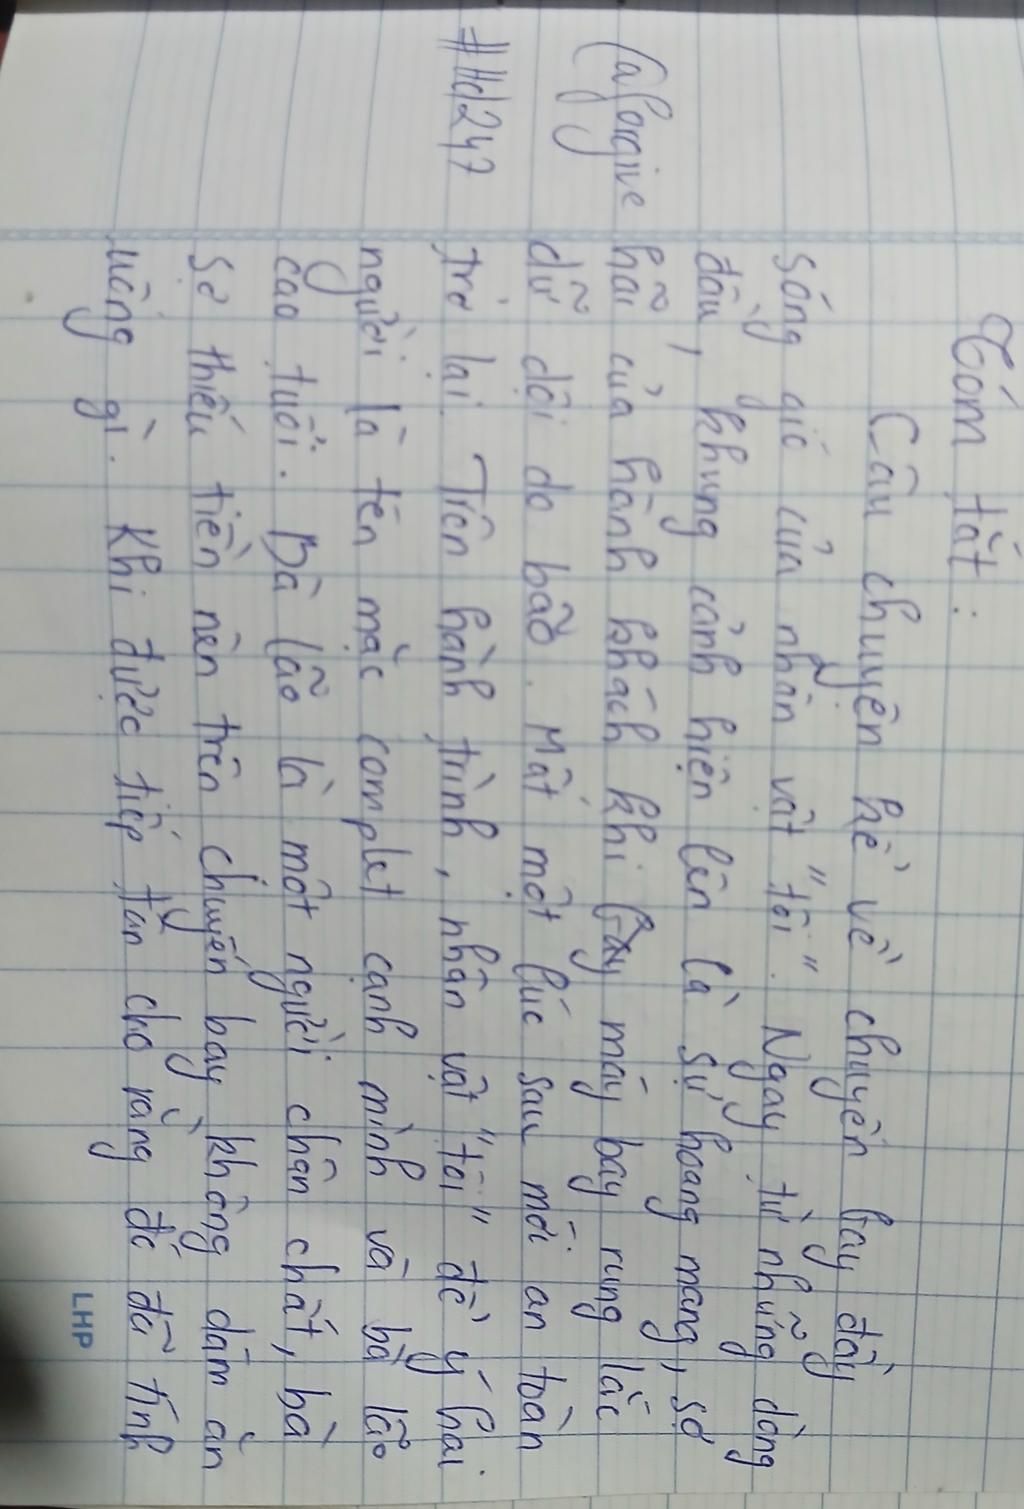 Tóm tắt:
Câu chuyện kể về chuyến bay đầy
sóng gió của nhân vật "tôi". Ngay từ những dòng
đầu, khung cảnh hiện lên là sự hoang mang, sợ
hãi của hành khách khi máy bay rung lắc
dữ dội do bão. Mất một lúc sau mới an toàn
trở lại. Trên hành trình, nhân vật "tôi" để ý hai
người là tên mặc complet cạnh mình và bà lão
cao tuổi. Bà lão là một người chân chất, bà
sợ thiếu tiền nên trên chuyến bay không dám ăn
uống gì. Khi được tiếp tân cho rằng đó đã tính
Caforgive
#Hd247
LHP